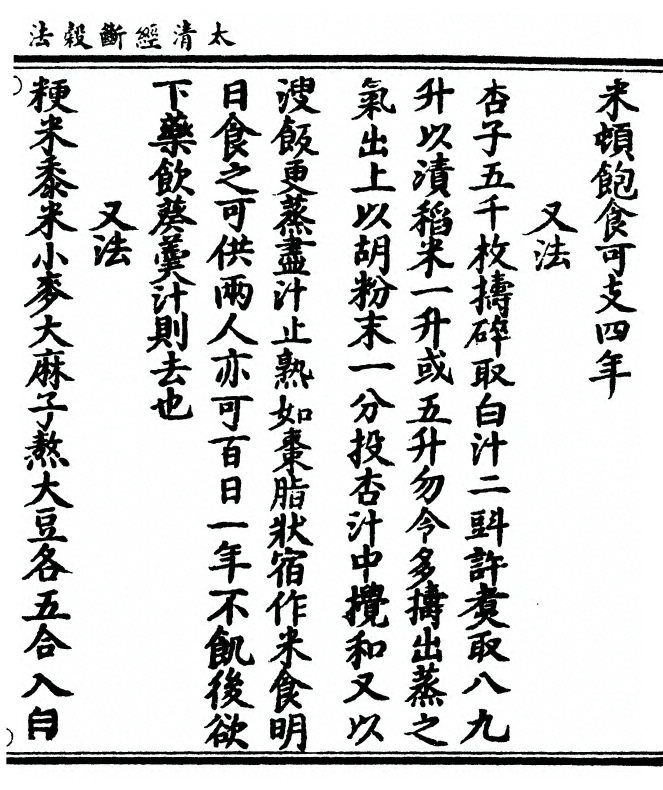 太清經斷穀法
米頓飽食可支四年
又法
杏子五千枚擣碎取白汁二㪷許煑取八九
升以漬稻米一升或五升勿令多擣出蒸之
氣出上以胡粉末一分投杏汁中攪和又以
溲飯更蒸盡汁止熟如棗脂狀宿作米食明
日食之可供兩人亦可百日一年不飢後欲
下藥飲葵羹汁則去也
又法
粳米黍米小麥大麻子熬大豆各五合入白